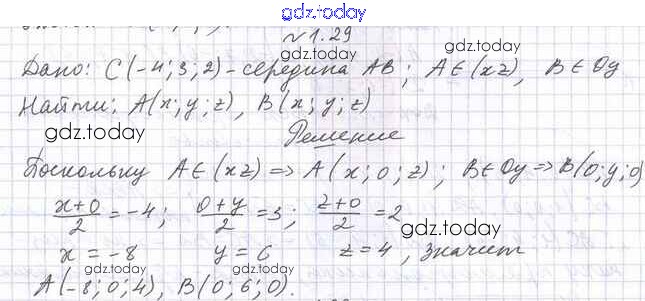 gdz.today
№ 1.29
Дано: C(-4; 3; 2) - середина AB; A∈(xz), B∈Oy
gdz.today
Найти: A(x; y; z), B(x; y; z)
gdz.today
gdz.today
Решение
Поскольку A∈(xz) => A(x; 0; z); B∈Oy => B(0; y; 0)
(x+0)/2 = -4; (0+y)/2 = 3; (z+0)/2 = 2
gdz.today
gdz.today
x = -8 y = 6 z = 4, значит
gdz.today
gdz.today
gdz.today
A(-8; 0; 4), B(0; 6; 0).